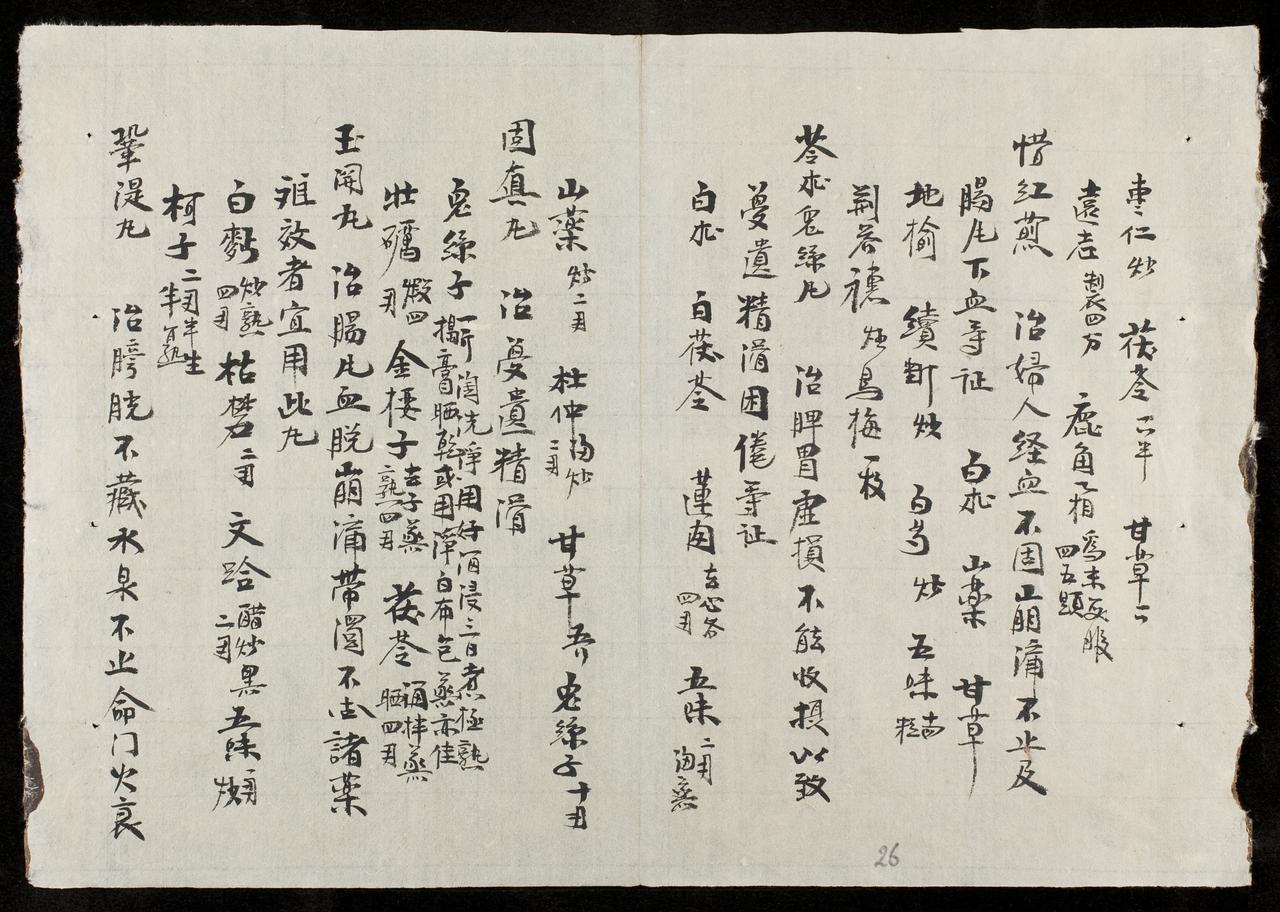 棗仁炒 茯苓一𠆤半 甘草一
遠志制衣四分 鹿角霜為末每服四五題
惜紅煎 治婦人経血不固崩漏不止及
腸風下血等証 白朮 山藥 甘草
地榆 續斷炒 白芍炒 五味
荆芥穗炒烏梅一枚
苓朮兔絲丸 治脾胃虛損不能收摄以致
憂遺精滑困倦等証
白朮 白茯苓 蓮肉去心各四両 五味二両酒蒸
山藥炒二両 杜仲酒炒二両 甘草 兔絲子十両
固真丸 治憂遺精滑
兔絲子一斤淘洗淨用好酒浸三日煮極熟搗膏晒乾或用潭白布包蒸亦佳
牡礪煆四両 金櫻子去子蒸熟四両 茯苓酒拌蒸晒四両
玉関丸 治腸風血脱崩漏帶濁不古諸藥
难效者宜用此丸
白麪炒熟四両 枯礬二両 文蛤醋炒黑二両 五味一両炒
柯子二両半生半熟
鞏湜丸 治膀胱不藏水泉不止命门火衰
26